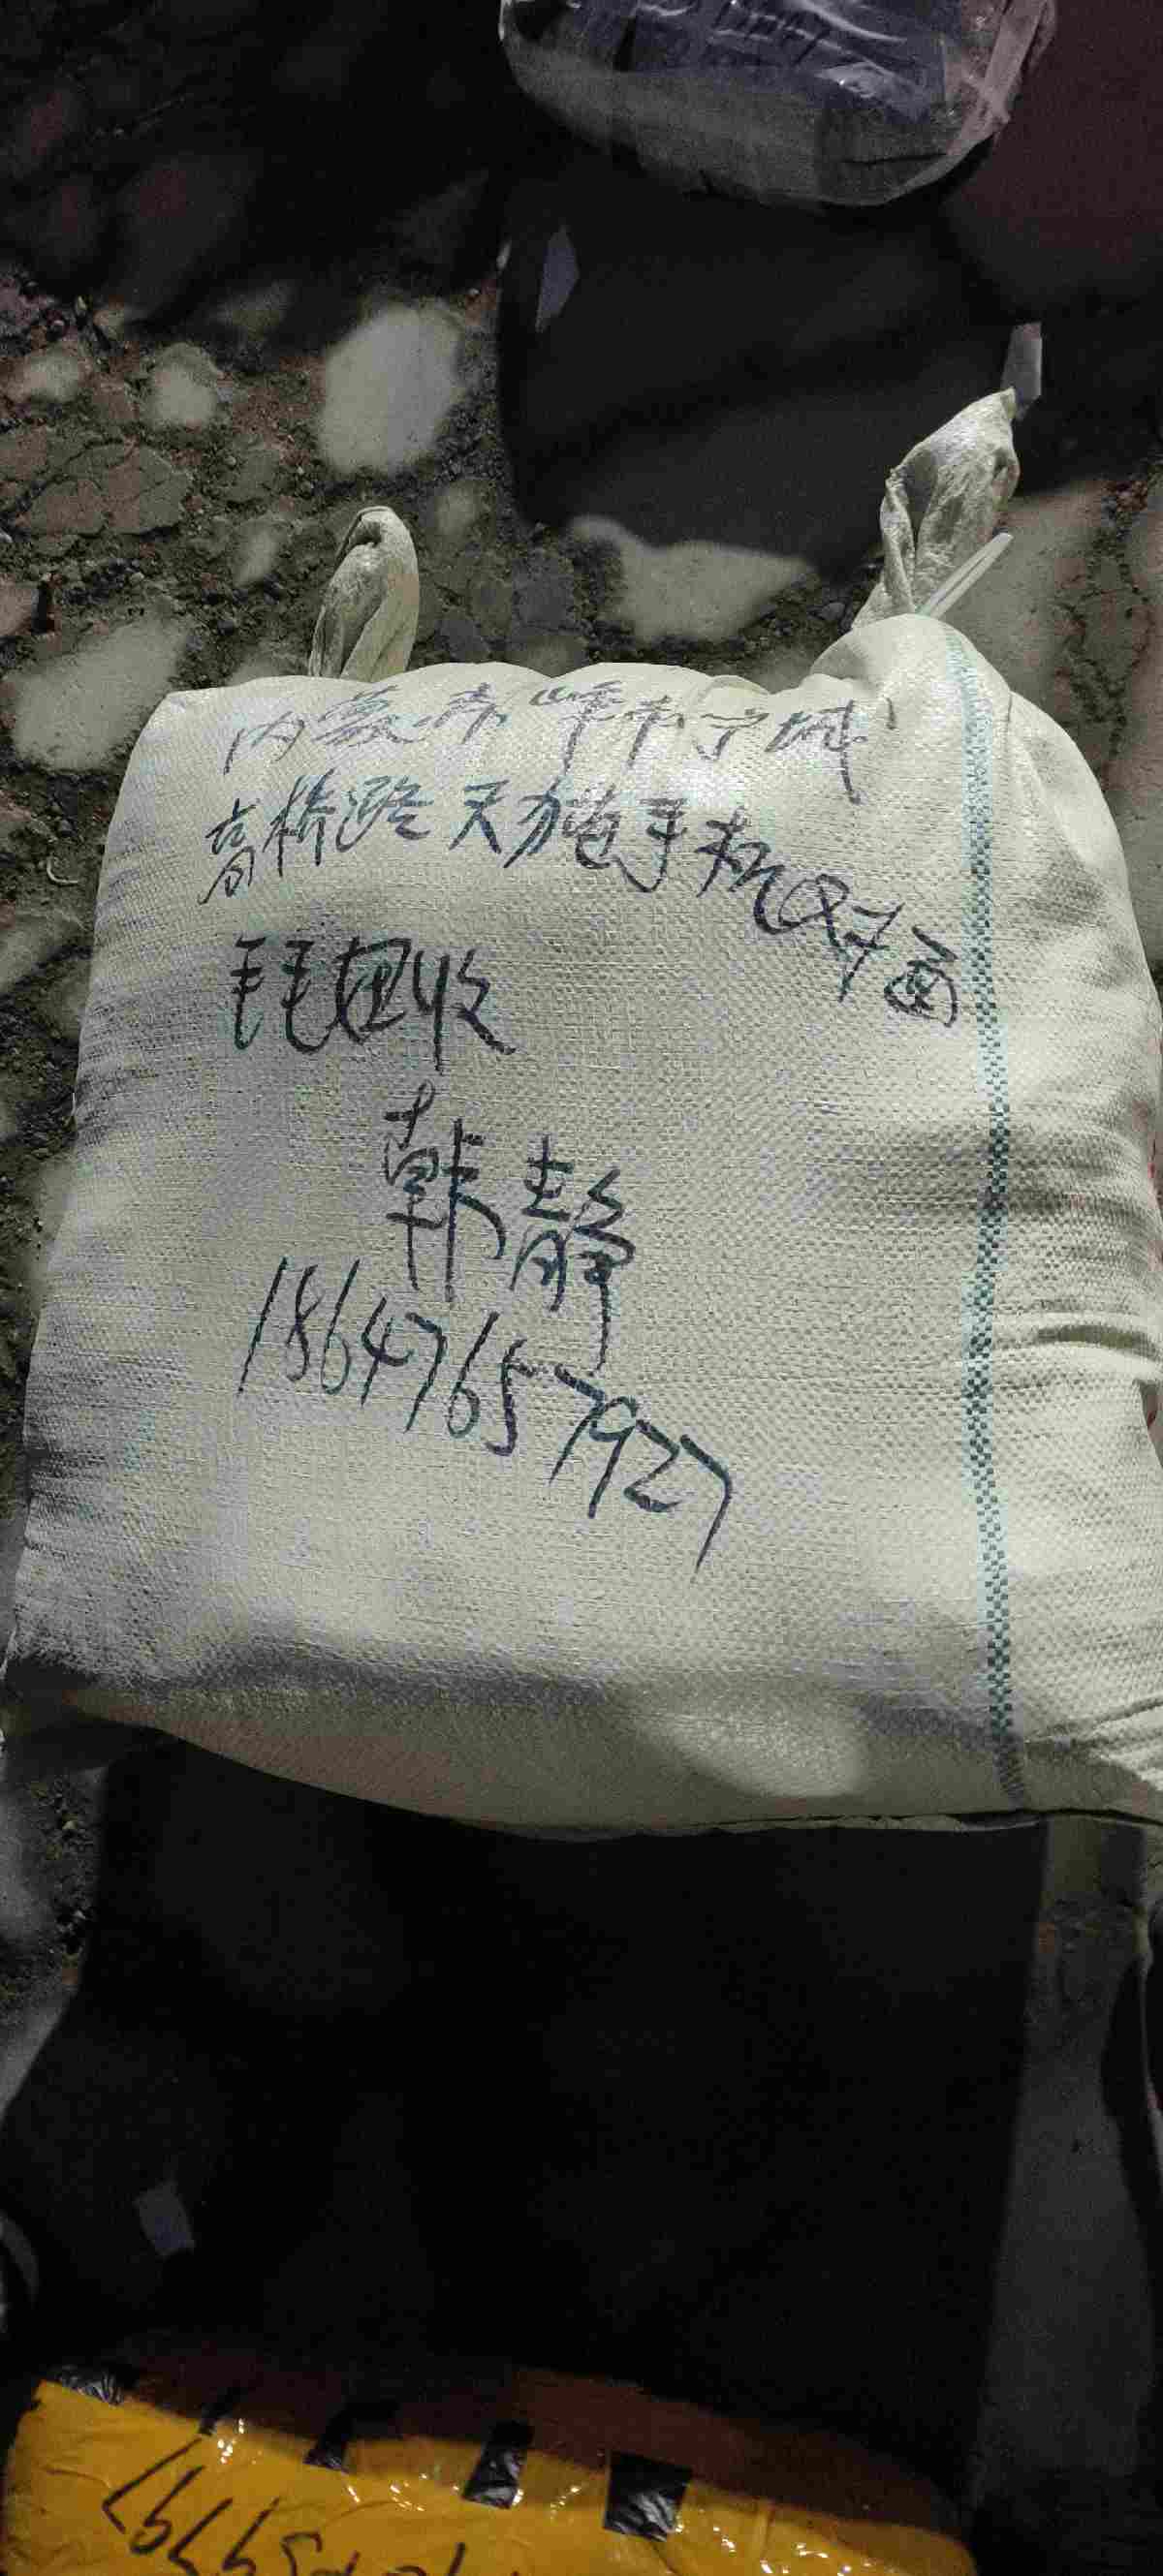 内蒙赤峰市宁城
高桥路天力电手机双子面
毛毛回收
韩静
18647657927